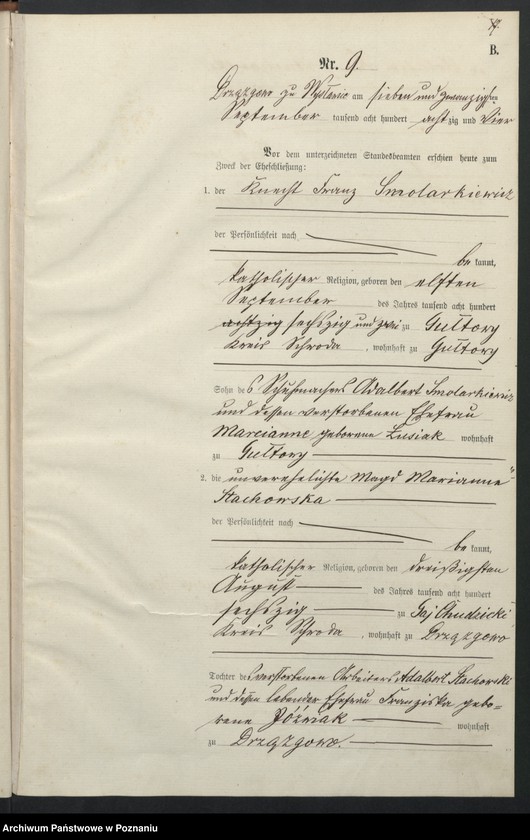 B.
Nr. 9.
Drązgowo zu am sieben und zwanzigsten
September tausend acht hundert achtzig und vier
Vor dem unterzeichneten Standesbeamten erschien heute zum
Zweck der Eheschließung:
1. der Knecht Franz Smolarkiewicz
der Persönlichkeit nach
be kannt,
katholischer Religion, geboren den elften
September des Jahres tausend acht hundert
sechszig und zwei zu Gułtowy
Kreis Schroda, wohnhaft zu Gułtowy
Sohn des Schuhmachers Adalbert Smolarkiewicz
und dessen verstorbenen Ehefrau
Marcianne geborene Łusiak wohnhaft
zu Gułtowy
2. die unverehelichte Magd Marianne
Stachowska
der Persönlichkeit nach
be kannt,
katholischer Religion, geboren den dreißigsten
August des Jahres tausend acht hundert
sechszig zu Gaj Chudzicki
Kreis Schroda, wohnhaft zu Drzązgowo
Tochter des verstorbenen Arbeiters Adalbert Stachowski
und dessen lebender Ehefrau Franziska gebo-
rene Jóźwiak wohnhaft
zu Drzązgowo.
Archiwum Państwowe w Poznaniu